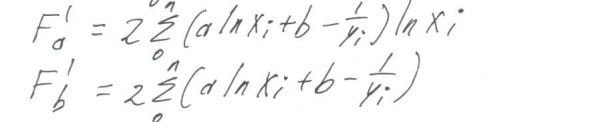 F'_a = 2 Σ_0^n (a ln x_i + b - 1/y_i) ln x_i
F'_b = 2 Σ_0^n (a ln x_i + b - 1/y_i)